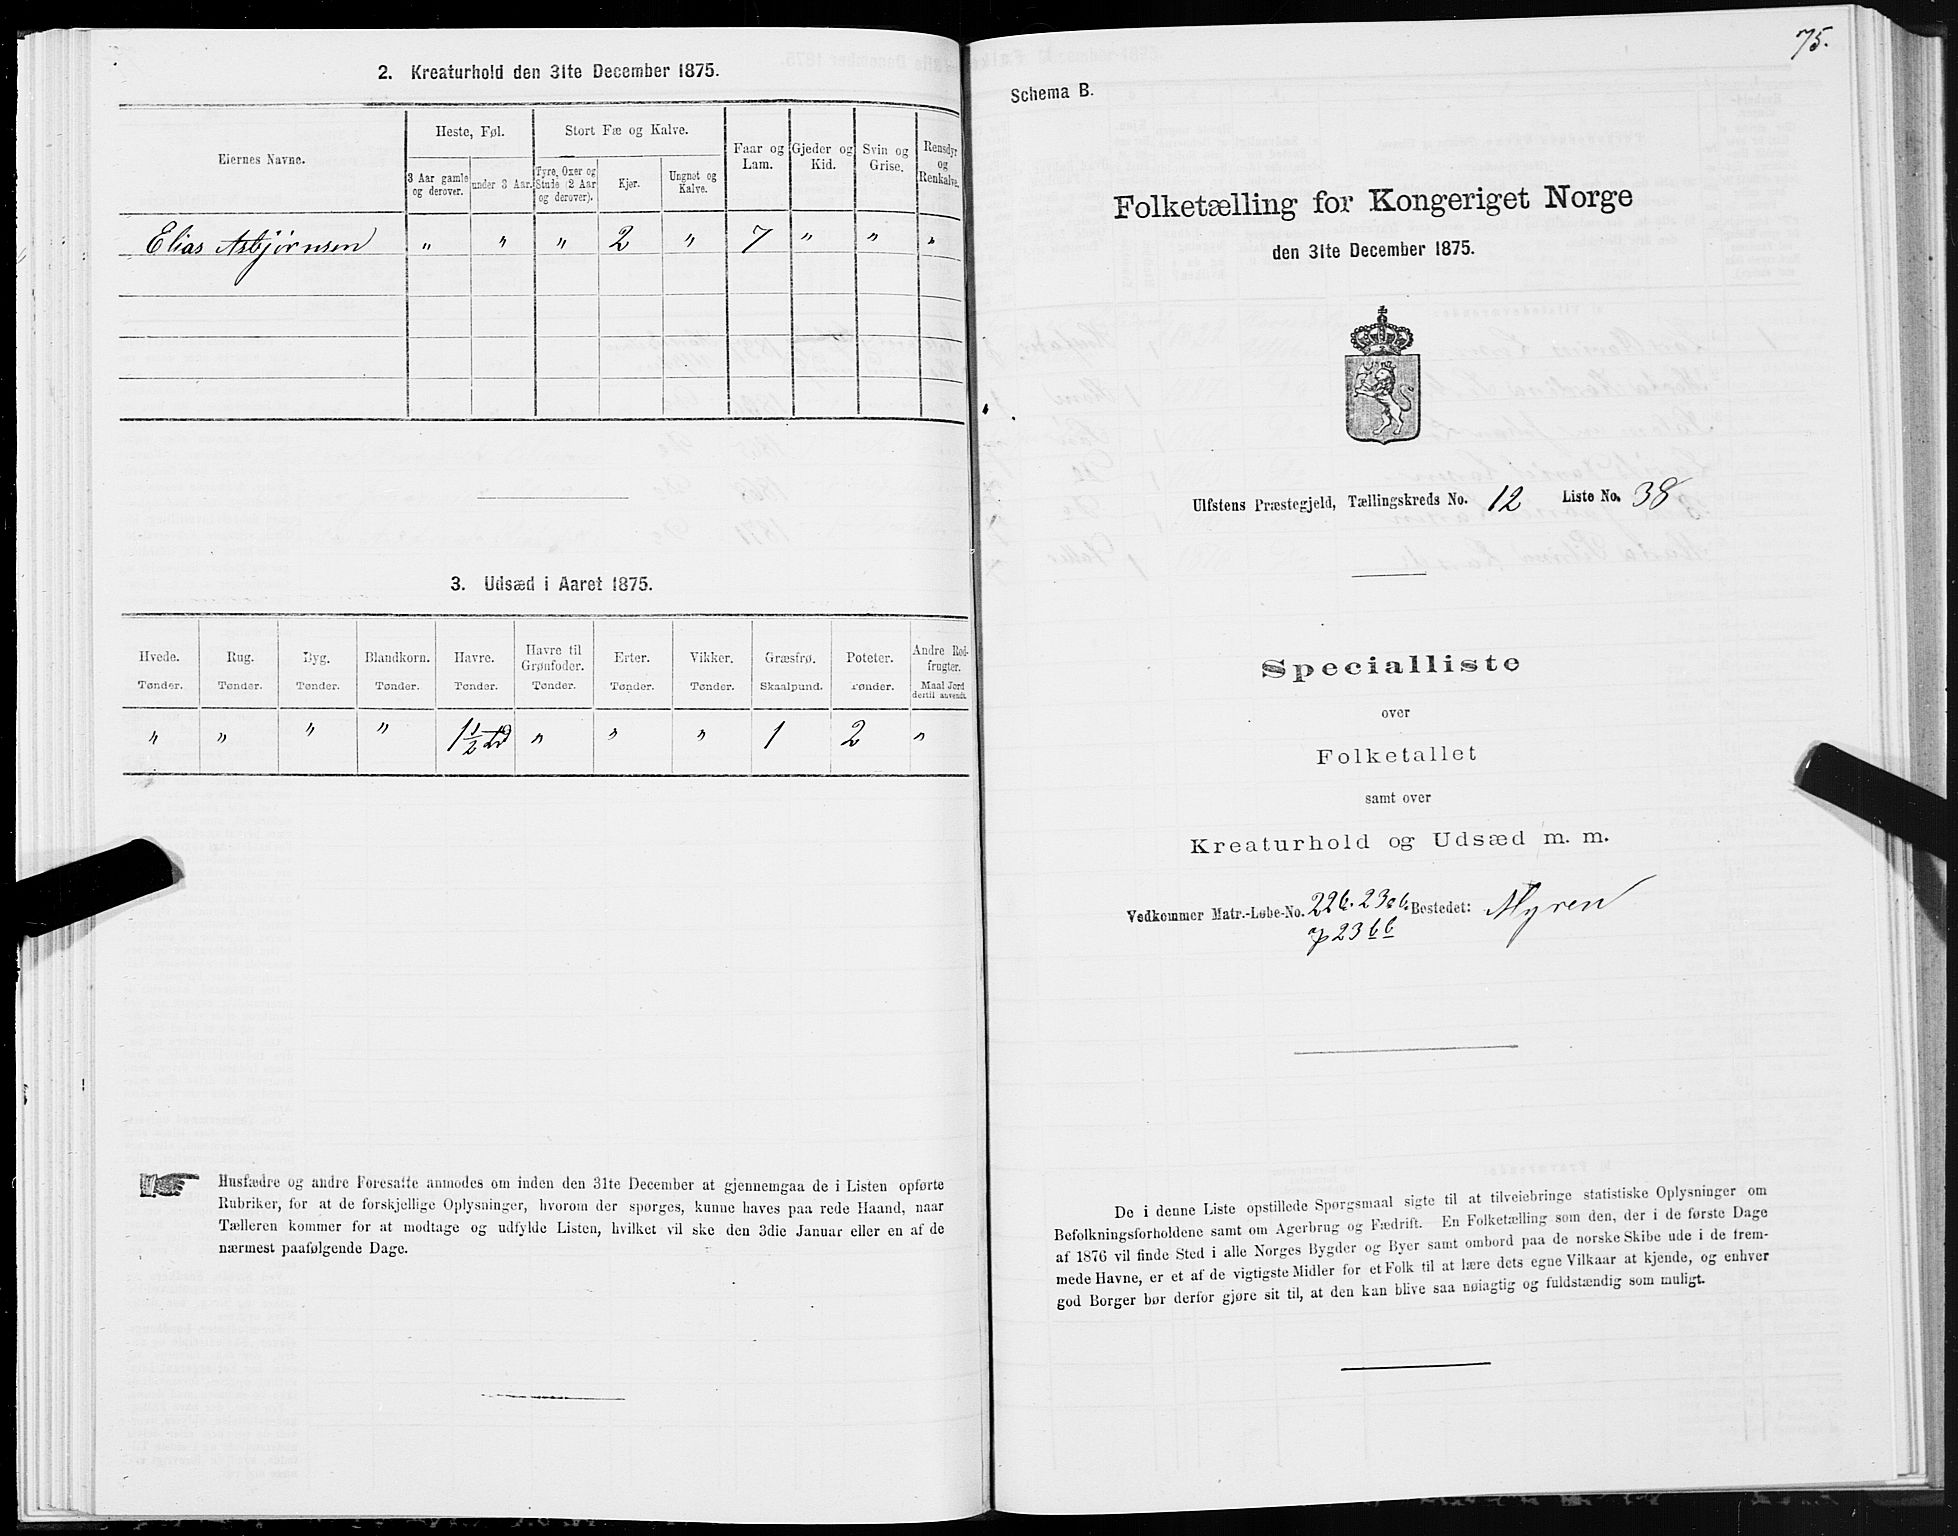 2. Kreaturhold den 31te December 1875.
Eiernes Navne.
Heste, Føl.
Stort Fæ og Kalve.
Faar og Lam.
Gjeder og Kid.
Svin og Grise.
Rensdyr og Renkalve.
3 Aar gamle og derover.
under 3 Aar.
Tyre, Oxer og Stude (2 Aar og derover).
Kjør.
Ungnøt og Kalve.
Elias Asbjørnsen " " " 2 " 7 " " "
3. Udsæd i Aaret 1875.
Hvede. Rug. Byg. Blandkorn. Havre. Havre til Grønfoder. Erter. Vikker. Græsfrø. Poteter. Andre Rodfrugter.
Tønder. Tønder. Tønder. Tønder. Tønder. Tønder. Tønder. Tønder. Skaalpund. Tønder. Maal Jord dertil anvendt.
" " " " 1 1/2 Td " " " 1 2 "
Husfædre og andre Foresatte anmodes om inden den 31te December at gjennemgaa de i Listen opførte
Rubriker, for at de forskjellige Oplysninger, hvorom der spørges, kunne haves paa rede Haand, naar
Tælleren kommer for at modtage og udfylde Listen, hvilket vil ske den 3die Januar eller en af de
nærmest paafølgende Dage.
75.
Schema B.
Folketælling for Kongeriget Norge
den 31te December 1875.
Ulfstens Præstegjeld, Tællingskreds No. 12 Liste No. 38
Specialliste
over
Folketallet
samt over
Kreaturhold og Udsæd m. m.
Vedkommer Matr.-Løbe-No. 22b. 23 Bostedet: Myren
23 b b
De i denne Liste opstillede Spørgsmaal sigte til at tilveiebringe statistiske Oplysninger om
Befolkningsforholdene samt om Agerbrug og Fædrift. En Folketælling som den, der i de første Dage
af 1876 vil finde Sted i alle Norges Bygder og Byer samt ombord paa de norske Skibe ude i de frem-
mede Havne, er et af de vigtigste Midler for et Folk til at lære dets egne Vilkaar at kjende, og enhver
god Borger bør derfor gjøre sit til, at den kan blive saa nøiagtig og fuldstændig som muligt.